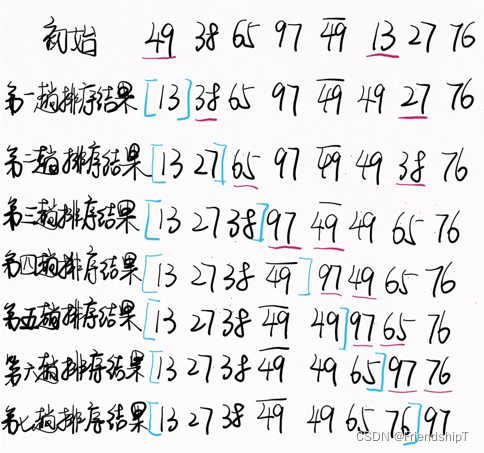 初始 49 38 65 97 4̅9̅ 13 27 76
第一趟排序结果 [13] 38 65 97 4̅9̅ 49 27 76
第二趟排序结果 [13 27] 65 97 4̅9̅ 49 38 76
第三趟排序结果 [13 27 38] 97 4̅9̅ 49 65 76
第四趟排序结果 [13 27 38 4̅9̅] 97 49 65 76
第五趟排序结果 [13 27 38 4̅9̅ 49] 97 65 76
第六趟排序结果 [13 27 38 4̅9̅ 49 65] 97 76
第七趟排序结果 [13 27 38 4̅9̅ 49 65 76] 97
CSDN @FriendshipT